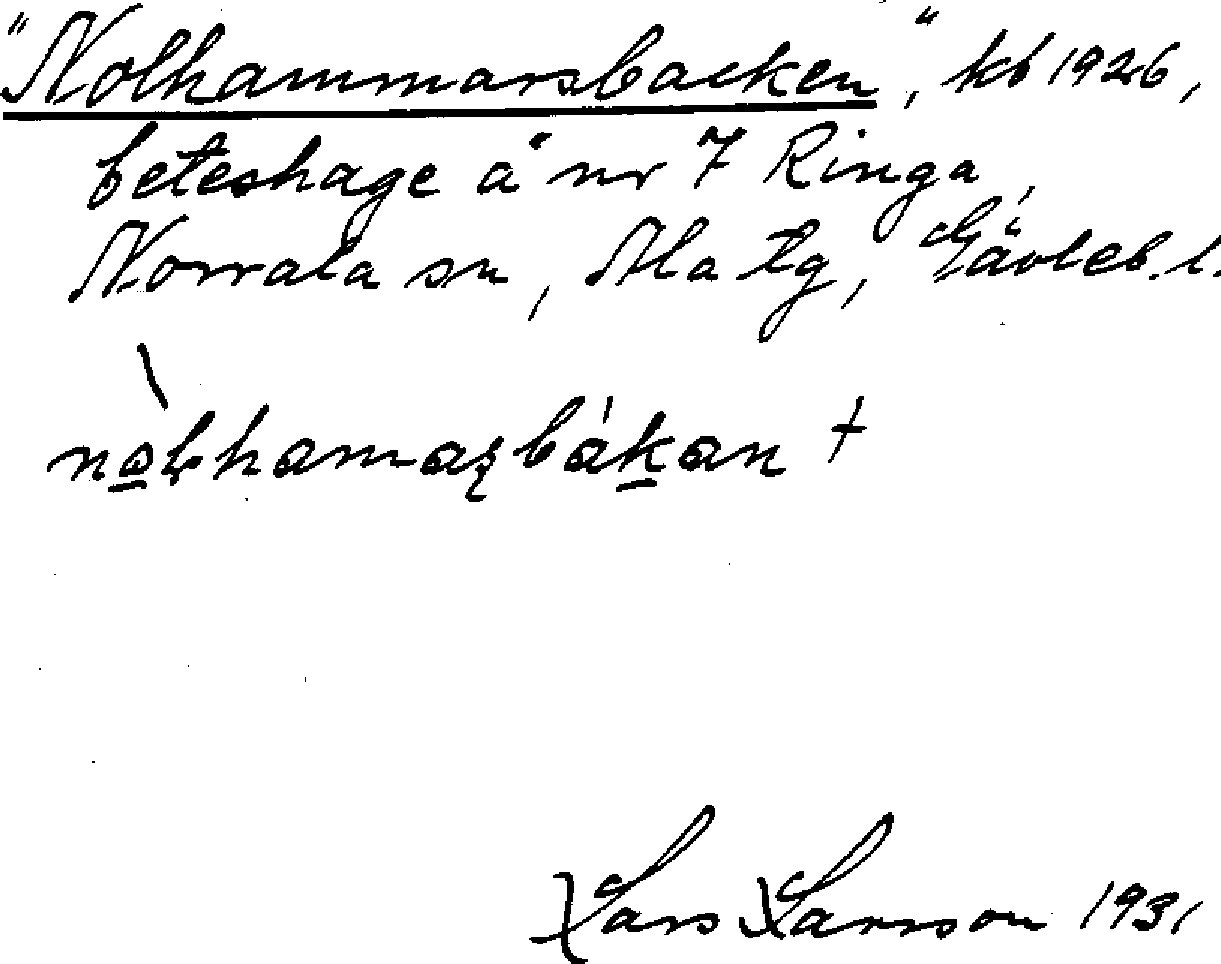 "Nolhammarsbacken", kb 1926,
beteshage å nr 7 Ringa,
Norrala sn, Ala tg, Gävleb. l.
Lars Larsson 1931